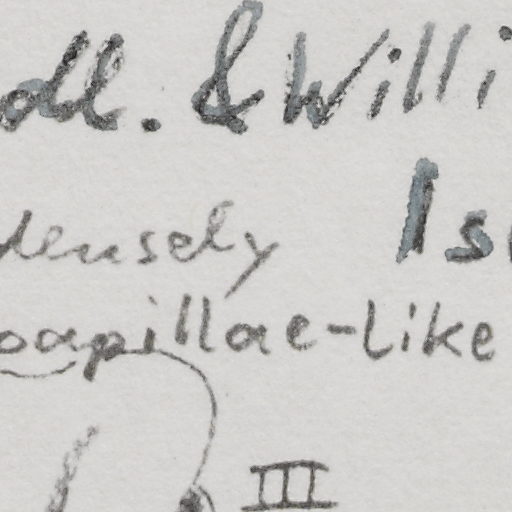 dl. & Willi
Is
densely
papillae-like
III